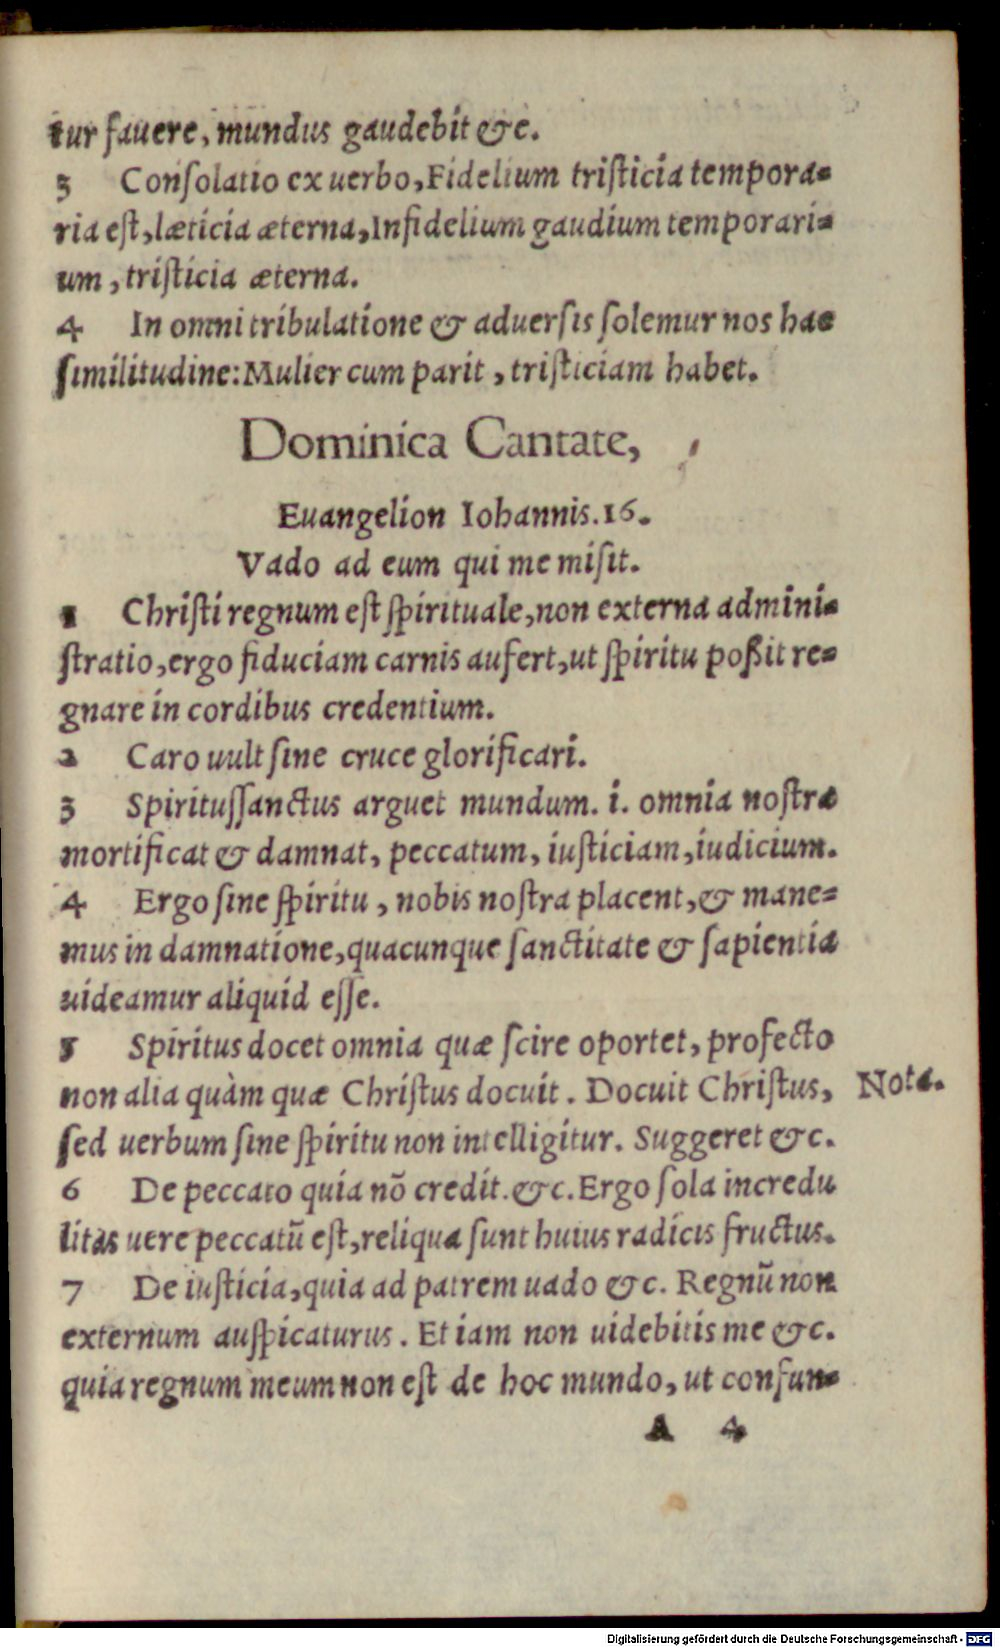 tur fauere, mundus gaudebit &c.
3 Conſolatio ex uerbo, Fidelium triſticia tempora-
ria eſt, læticia æterna, Infidelium gaudium temporari-
um, triſticia æterna.
4 In omni tribulatione & aduerſis ſolemur nos hac
ſimilitudine: Mulier cum parit, triſticiam habet.
Dominica Cantate,
Euangelion Iohannis. 16.
Vado ad eum qui me miſit.
1 Chriſti regnum eſt ſpirituale, non externa admini-
ſtratio, ergo fiduciam carnis aufert, ut ſpiritu poßit re-
gnare in cordibus credentium.
2 Caro uult ſine cruce glorificari.
3 Spirituſſanctus arguet mundum. i. omnia noſtra
mortificat & damnat, peccatum, iuſticiam, iudicium.
4 Ergo ſine ſpiritu, nobis noſtra placent, & mane-
mus in damnatione, quacunque ſanctitate & ſapientia
uideamur aliquid eſſe.
5 Spiritus docet omnia quæ ſcire oportet, profecto
non alia quàm quæ Chriſtus docuit. Docuit Chriſtus, Nota.
ſed uerbum ſine ſpiritu non intelligitur. Suggeret &c.
6 De peccato quia nō credit. &c. Ergo ſola incredu
litas uere peccatū eſt, reliqua ſunt huius radicis fructus.
7 De iuſticia, quia ad patrem uado &c. Regnū non
externum auſpicaturus. Et iam non uidebitis me &c.
quia regnum meum non eſt de hoc mundo, ut confun-
A 4
Digitalisierung gefördert durch die Deutsche Forschungsgemeinschaft - DFG